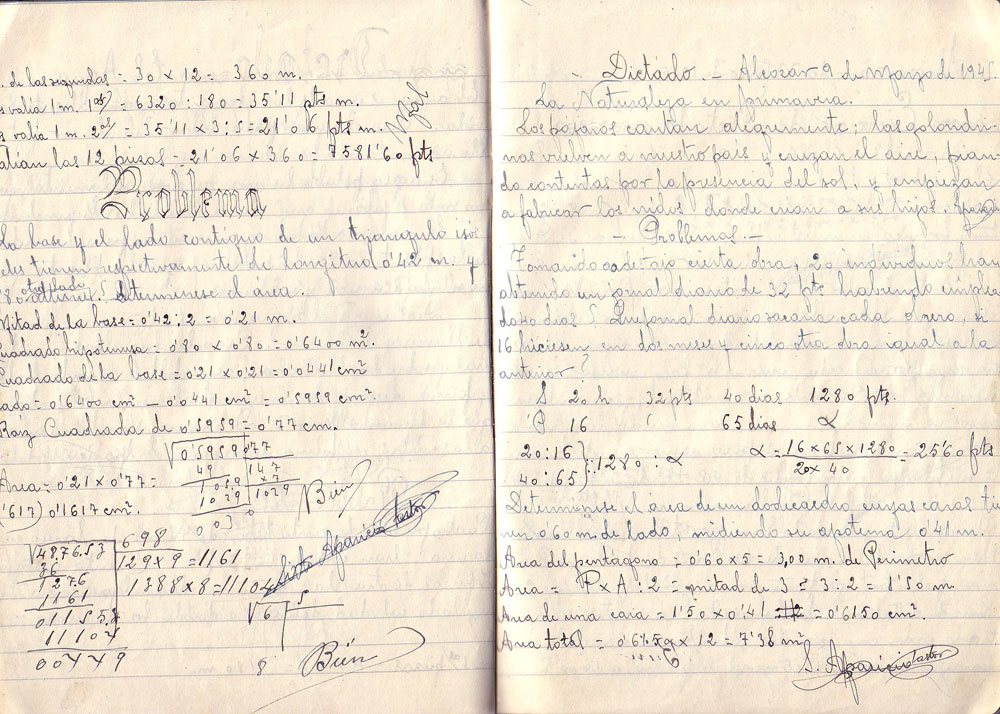 . de las segundas = 30 x 12 = 360 m.
s valia 1 m. 1as) = 6320 : 180 = 35'11 pts m.
s valia 1 m. 2as) = 35'11 x 3 : 5 = 21'06 pts m.
alian las 12 piezas = 21'06 x 360 = 7581'60 pts
Mal
Problema
La base y el lado contiguo de un triangulo isós
eles tienen respectivamente de longitud 0'42 m. y
'80 determinese el area.
otro lado
Mitad de la base = 0'42 : 2 = 0'21 m.
Cuadrado hipotenusa = 0'80 x 0'80 = 0'6400 m2.
Cuadrado de la base = 0'21 x 0'21 = 0'0441 cm2
ado = 0'6400 cm2 - 0'0441 cm2 = 0'5959 cm2.
Raiz Cuadrada de 0'5959 = 0'77 cm.
√0'5959 0'77
49 147
1059 x7
1029 1029
0030
Area = 0'21 x 0'77 =
('617) 0'1617 cm2.
Bién
Sixto Aparicio Pastor
√487653 698
36 129 x 9 = 1161
1276 1388 x 8 = 11104
1161
01155.8
11104
00449
√6 5
8
Bién
- Dictado. - Alcozar 9 de Marzo de 1945.
La Naturaleza en primavera.
Los pajaros cantan alegremente; las golondri-
nas vuelven a nuestro pais y cruzan el aire, pian
do contentas por la presencia del sol, y empiezan
a fabricar los nidos donde crian a sus hijos.
- Problemas. -
Tomando a destajo cierta obra, 20 individuos han
obtenido un jornal diario de 32 pts habiendo emplea
do 40 dias ¿ Que jornal diario sacaria cada obrero, si
16 hiciesen en dos meses y cinco otra obra igual a la
anterior?
S 20 h 32 pts 40 dias 1280 pts.
P 16 " 65 dias x
20:16
40:65 } :: 1280 : x x = 16 x 65 x 1280 / 20 x 40 = 2560 pts
Determinese el área de un dodecaedro cuyas caras tie
nen 0'60 m. de lado, midiendo su apotema 0'41 m.
Area del pentagono = 0'60 x 5 = 3,00 m. de Perimetro
Area = P x A : 2 = mitad de 3 = 3 : 2 = 1'50 m.
Area de una cara = 1'50 x 0'41 = 0'6150 cm2.
Area total = 0'6150 x 12 = 7'38 m2
S. Aparicio Pastor